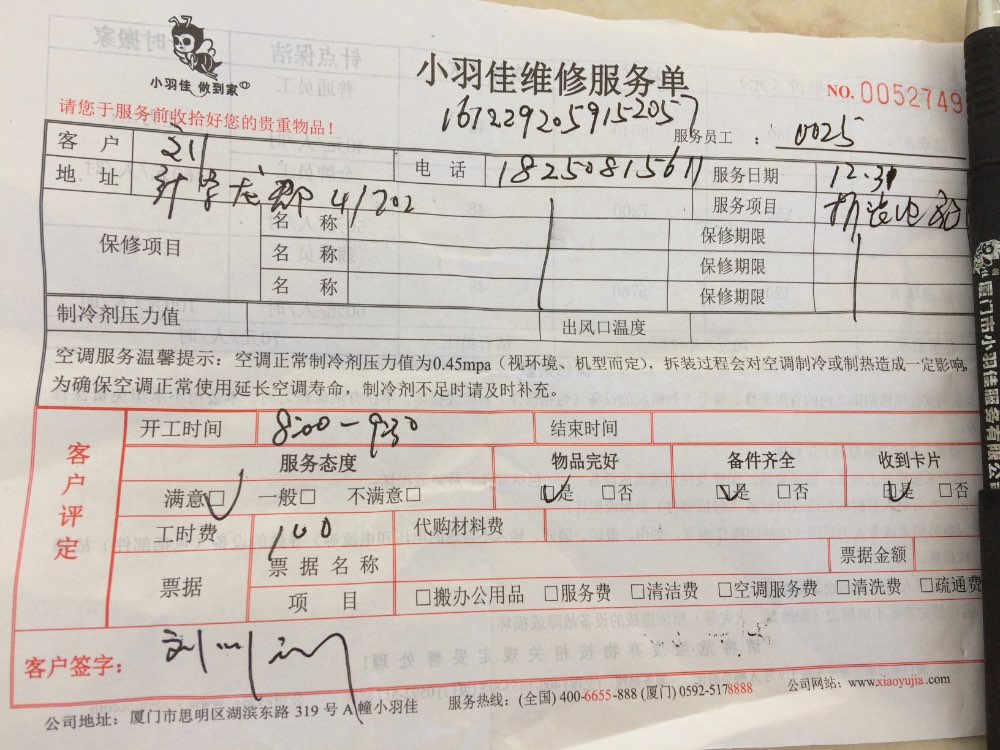 小羽佳 做到家
小羽佳维修服务单
NO. 0052749
请您于服务前收拾好您的贵重物品！
1612292059152057
服务员工 ： 0025
客 户 刘 电 话 18250815611 服务日期 12.31
地 址 41202 服务项目
保修项目 名 称 保修期限
名 称 保修期限
名 称 保修期限
制冷剂压力值 出风口温度
空调服务温馨提示：空调正常制冷剂压力值为0.45mpa（视环境、机型而定），拆装过程会对空调制冷或制热造成一定影响，
为确保空调正常使用延长空调寿命，制冷剂不足时请及时补充。
客户评定
开工时间 8:00-9:30 结束时间
服务态度 物品完好 备件齐全 收到卡片
满意□ 一般□ 不满意□ □是 □否 □是 □否 □是 □否
工时费 100 代购材料费
票据 票 据 名 称 票据金额
项 目 □搬办公用品 □服务费 □清洁费 □空调服务费 □清洗费 □疏通费
客户签字： 刘
公司地址：厦门市思明区湖滨东路 319 号 A 幢小羽佳 服务热线：(全国) 400-6655-888 (厦门) 0592-5178888 公司网站：www.xiaoyujia.com
厦门市小羽佳服务有限公